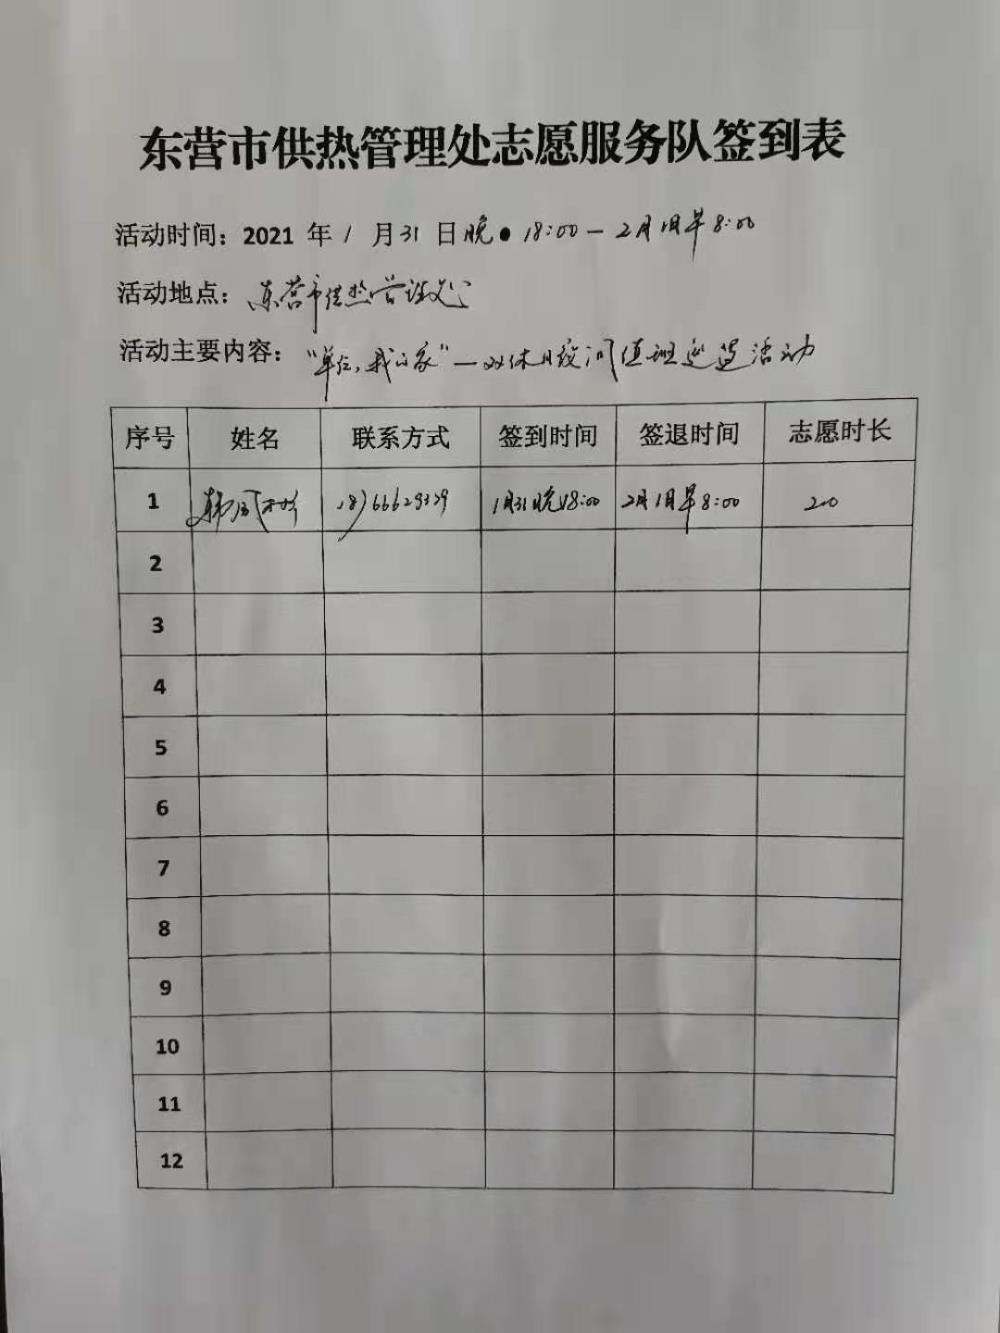 东营市供热管理处志愿服务队签到表
活动时间：2021 年 1 月 31 日晚 18:00 — 2月1日早8:00
活动地点：东营市供热管理处
活动主要内容：“单位，我的家”—双休日夜间值班巡逻活动
序号 姓名 联系方式 签到时间 签退时间 志愿时长
1 韩 1月31晚18:00 2月1日早8:00
2
3
4
5
6
7
8
9
10
11
12